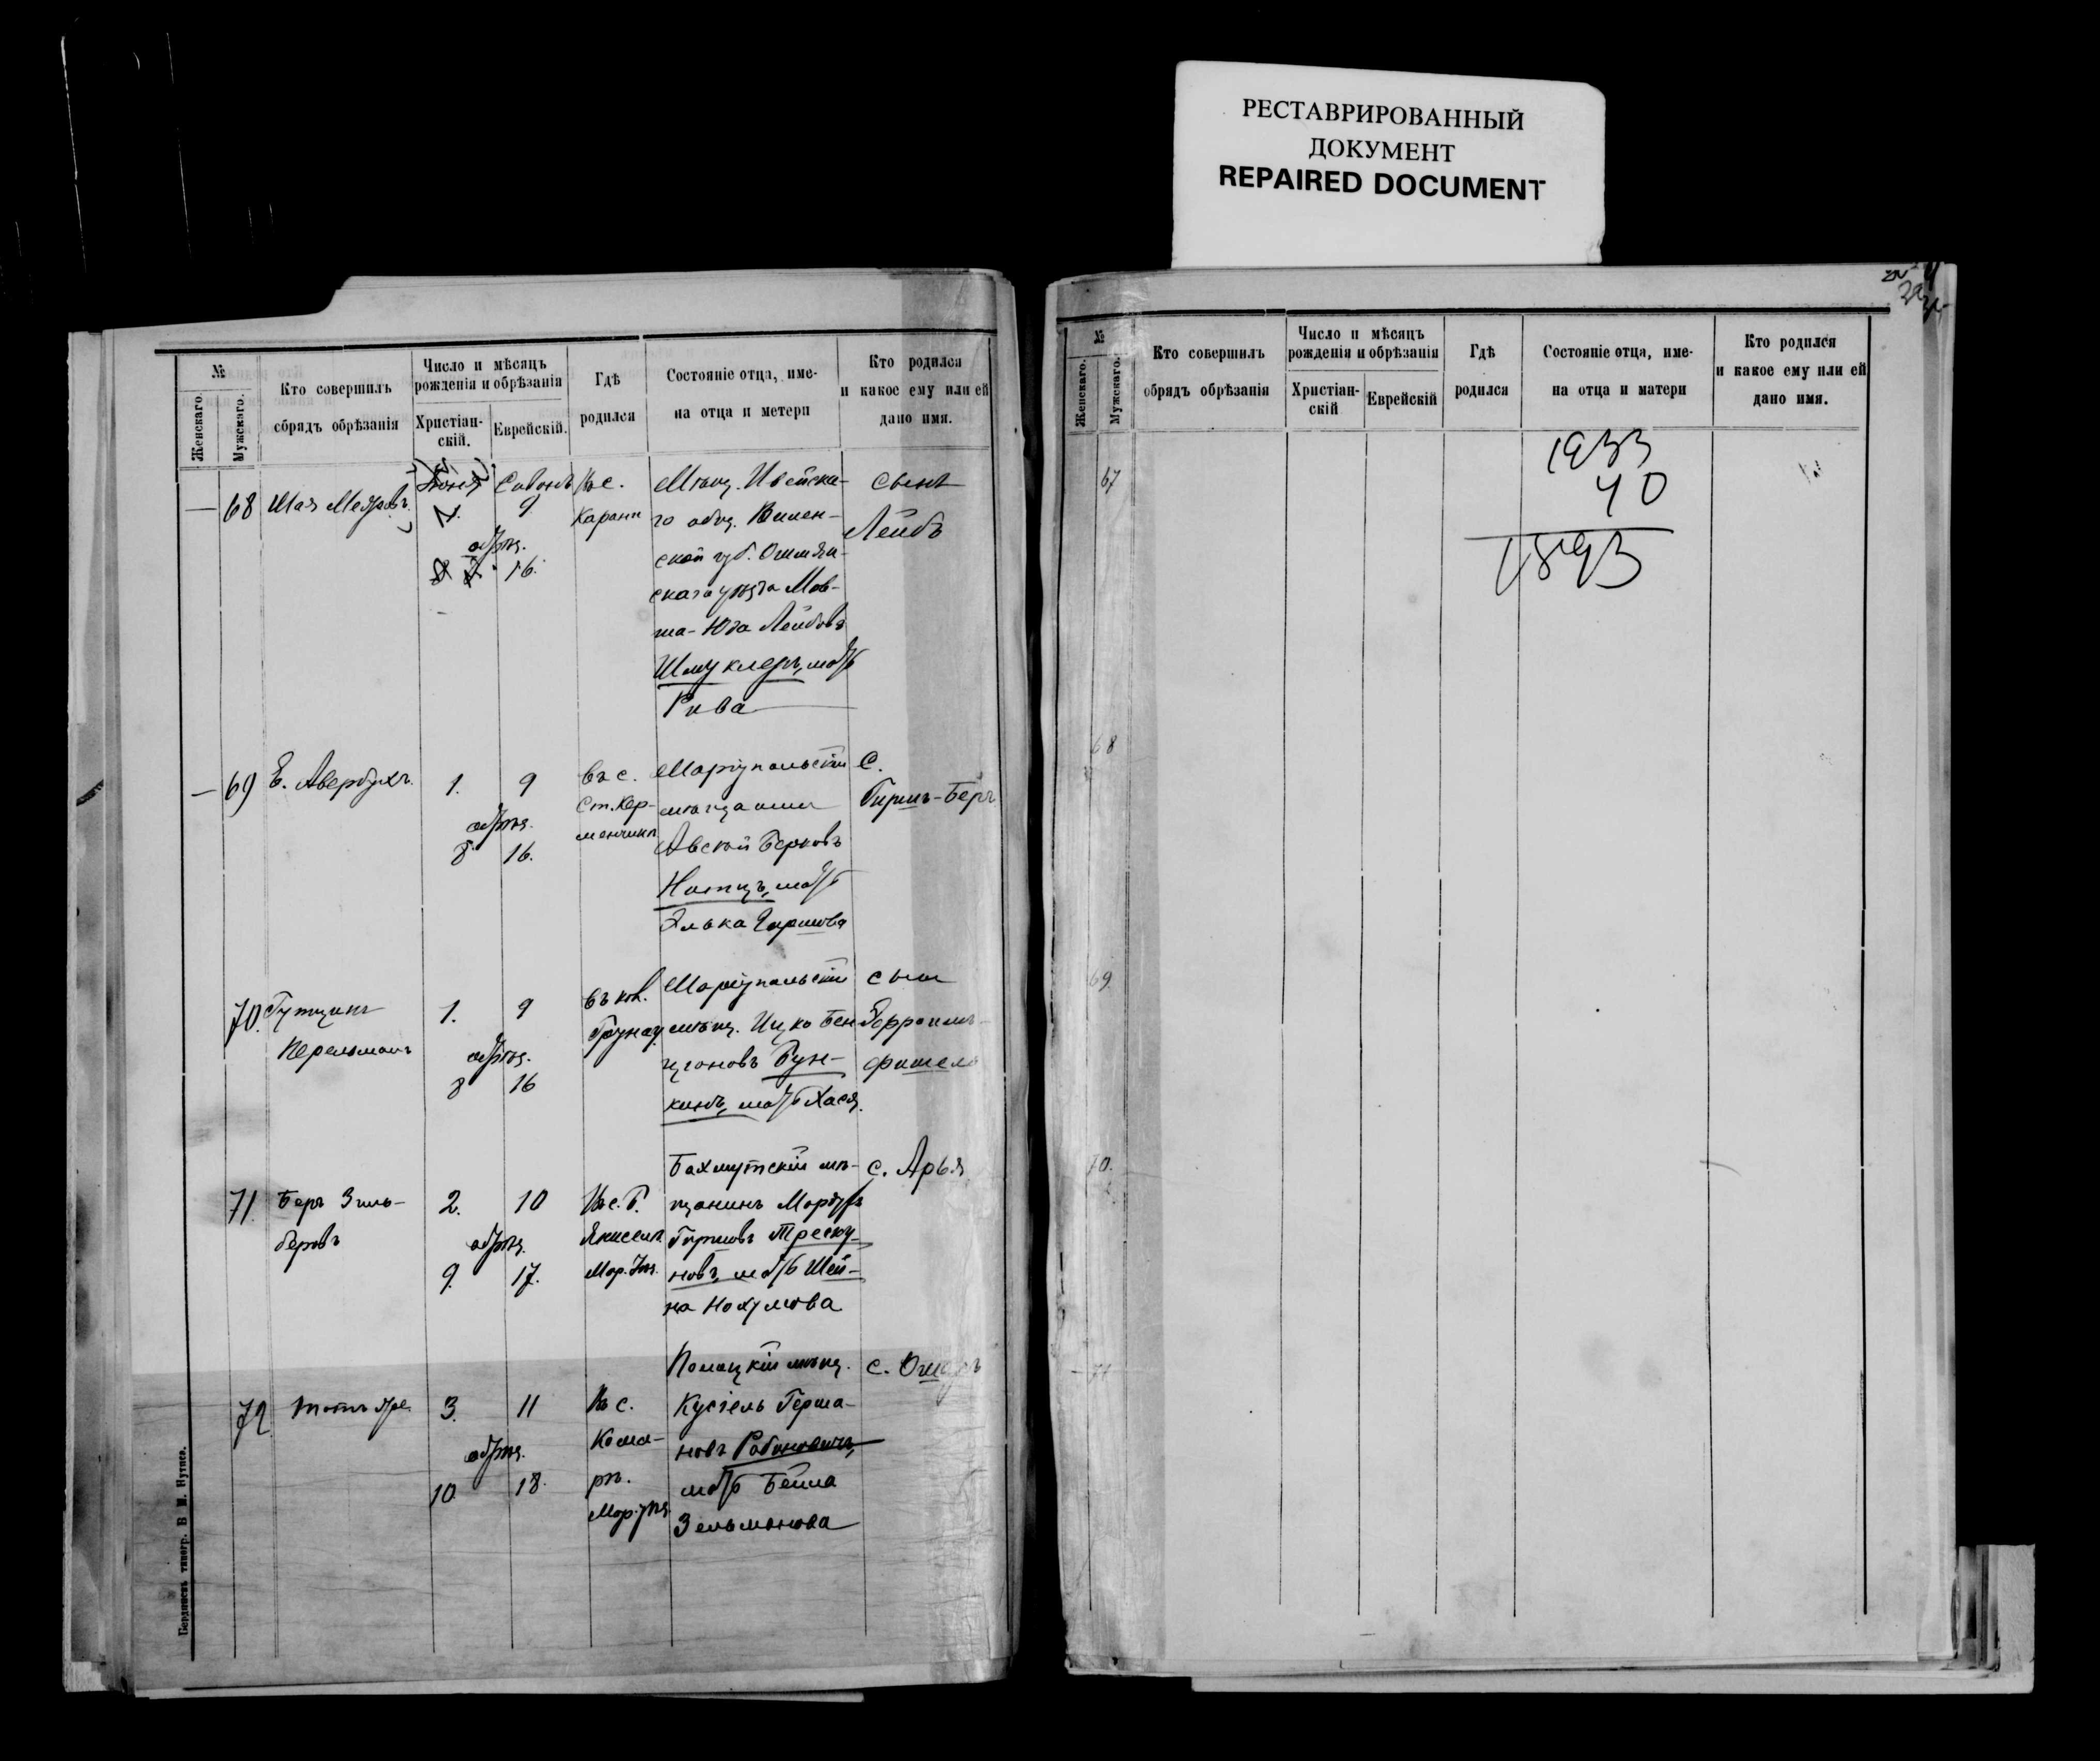 РЕСТАВРИРОВАННЫЙ
ДОКУМЕНТ
REPAIRED DOCUMENT
№
Женскаго.
Мужскаго.
Кто совершилъ
сбрядъ обрѣзанія
Число и мѣсяцъ
рожденія и обрѣзанія
Христіан-
скій.
Еврейскій.
Гдѣ
родился
Состояніе отца, име-
на отца и метери
Кто родился
и какое ему или ей
дано имя.
— 68 Шая
Іюня
9
обрѣз.
16.
Въ с.
Карани
Мѣщ. Ивейска-
го общ. Вилен-
ской губ. Ошмян-
скаго уѣзда Мов-
ша-Юда Лейбовъ
Шмуклеръ, мать
Рива
сынъ
Лейбъ
— 69 Е. Авербухъ.
1.
9
обрѣз.
8
16.
въ с.
Ст. Кер-
менчикѣ
Маріупольскій
мѣщанинъ
Берковъ
мать
Элька Гиршова
с.
Гиршъ-Беръ
70.
Перельманъ
1.
9
обрѣз.
8
16
въ кол.
Грунау
Маріупольскій
мѣщ. Ицко Бен-
ціоновъ Бун-
кинъ, мать Хася.
сынъ
фишель
71. Беръ Зиль-
бервъ
2.
10
обрѣз.
9.
17.
Въ с. Б.
Янисель
Мар. Уѣз.
Бахмутскій мѣ-
щанинъ Мордухъ
Гиршовъ Треску-
новъ, мать Шей-
на Нохумова
с. Арья
72 тотъ же.
3.
11
обрѣз.
10
18.
Въ с.
Кома-
рѣ.
Мар. уѣз
Полоцкій мѣщ.
Кусіель Герша-
новъ Рабиновичъ,
мать Бейла
Зельманова
с. Ошеръ
Бердичевъ типогр. В М. Нутиса.
№
Женскаго.
Мужскаго.
Кто совершилъ
обрядъ обрѣзанія
Число и мѣсяцъ
рожденія и обрѣзанія
Христіан-
скій
Еврейскій
Гдѣ
родился
Состояніе отца, име-
на отца и матери
Кто родился
и какое ему или ей
дано имя.
67
68
69
70.
71
1933
40
1893